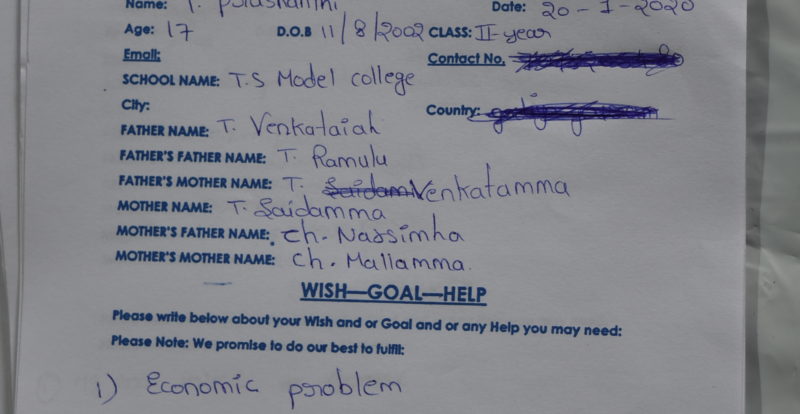 Name: T. Date: 20-1-2020
Age: 17 D.O.B 11/8/2002 CLASS: II-year
Email: Contact No.
SCHOOL NAME: T.S Model college
City: Country:
FATHER NAME: T. Venkataiah
FATHER'S FATHER NAME: T. Ramulu
FATHER'S MOTHER NAME: T. Saidam Venkatamma
MOTHER NAME: T. Saidamma
MOTHER'S FATHER NAME: ch. Narsimha
MOTHER'S MOTHER NAME: ch. Mallamma.
WISH—GOAL—HELP
Please write below about your Wish and or Goal and or any Help you may need:
Please Note: We promise to do our best to fulfil:
1) Economic problem